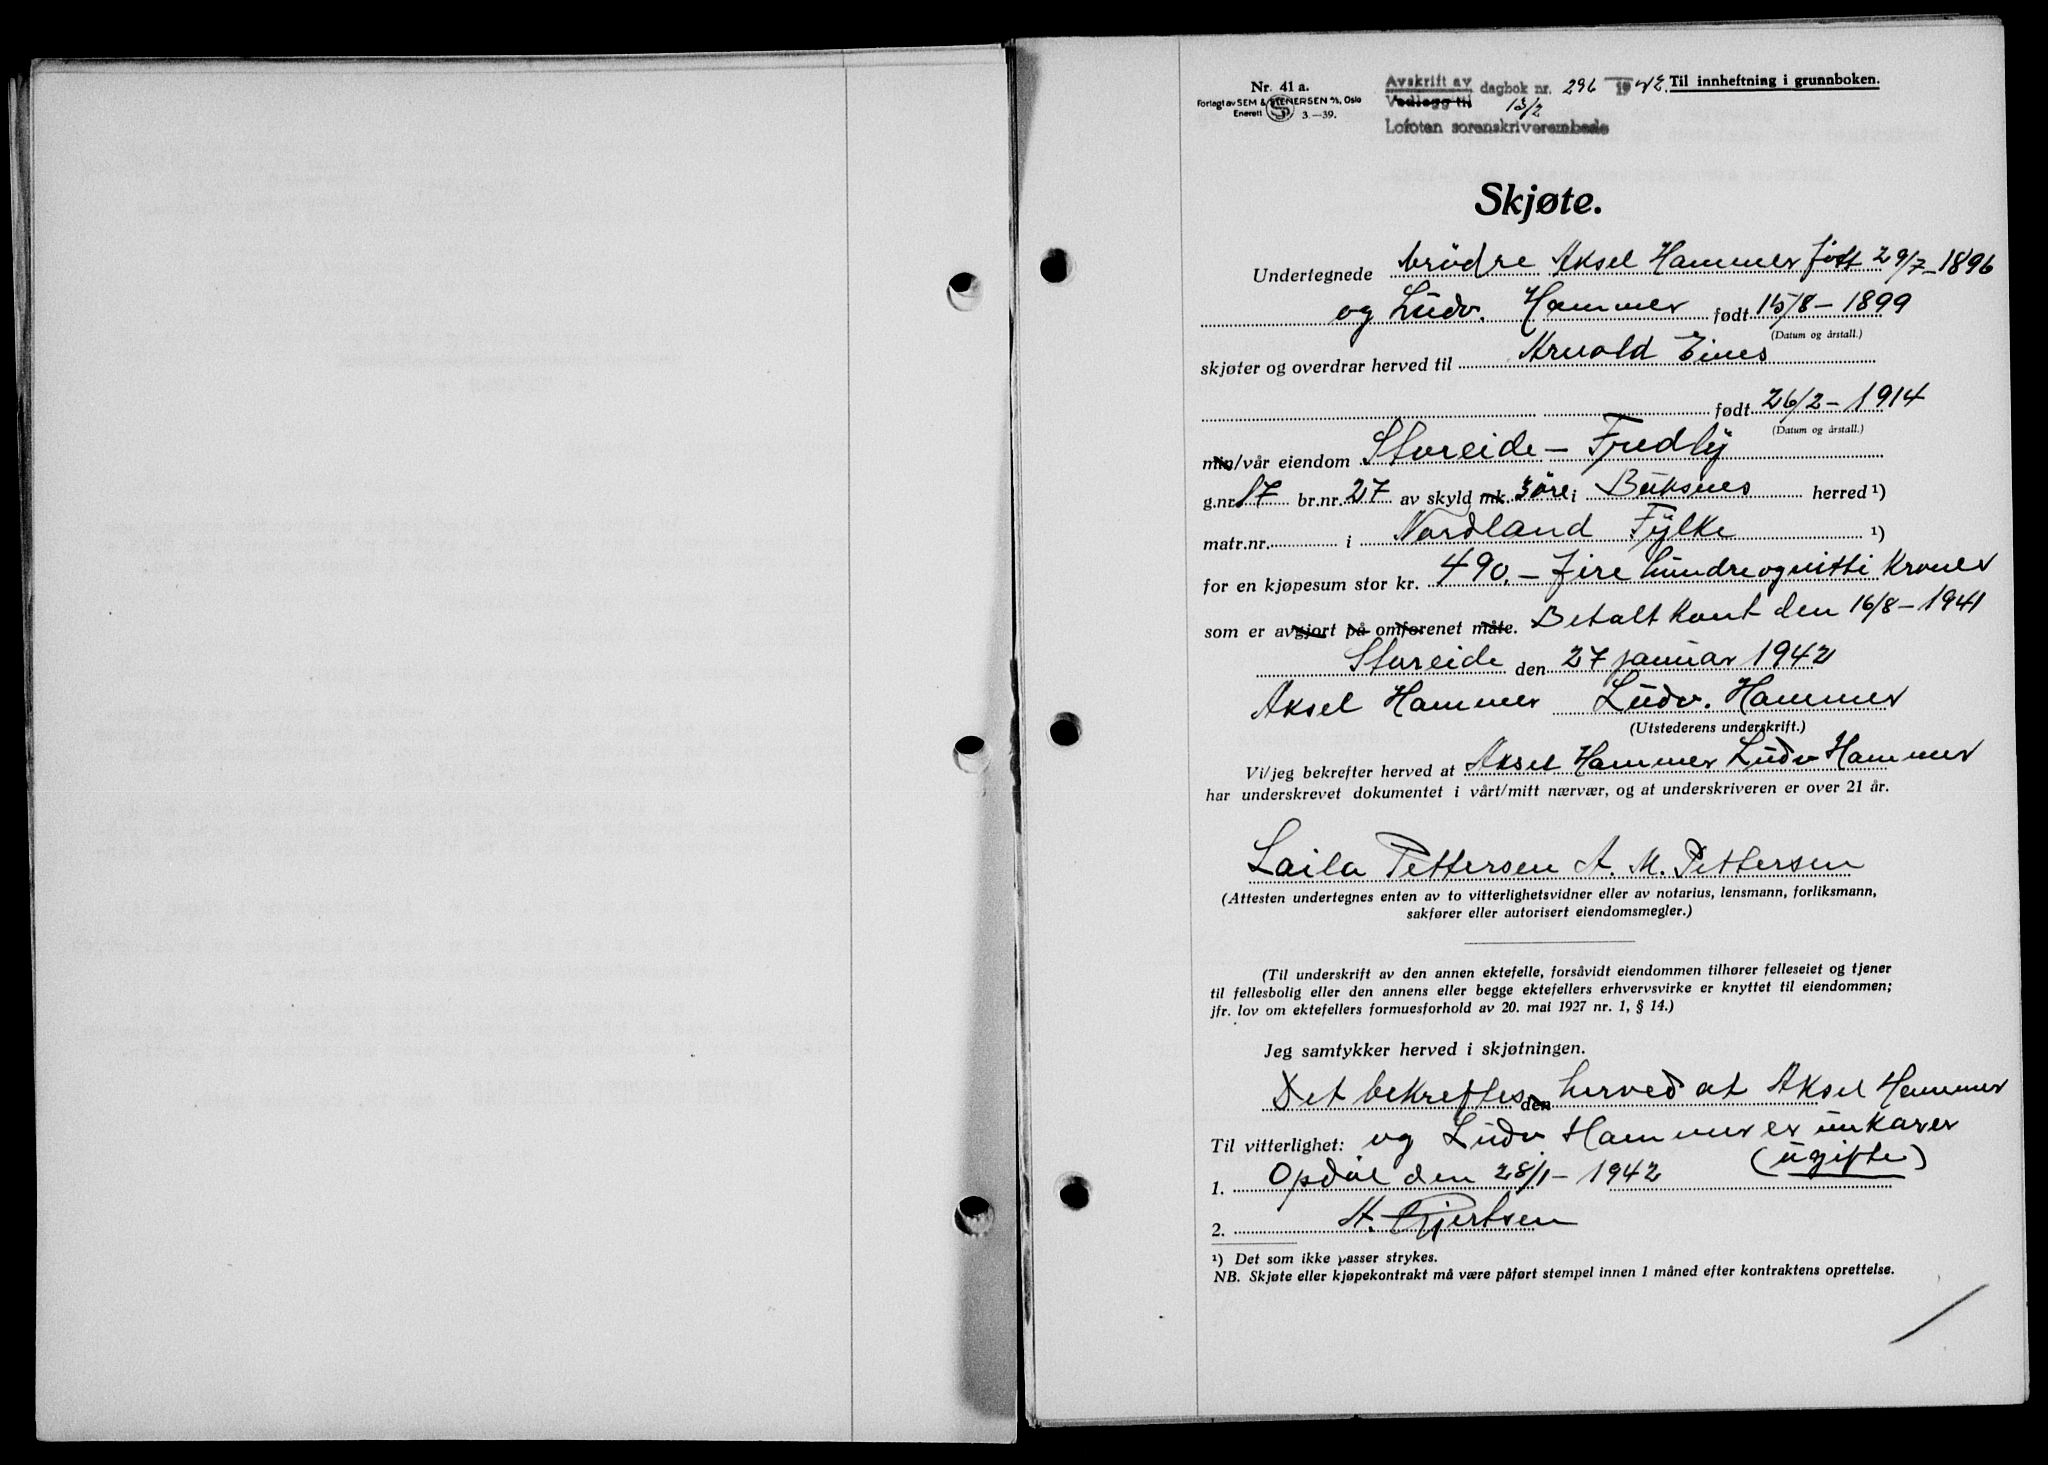 Nr. 41 a.
Forlagt av SEM & STENERSEN A/S, Oslo
Enerett 3.—39.
Avskrift av
Vedlegg til
dagbok nr. 296 1942
13/2
Lofoten sorenskriverembede
Til innheftning i grunnboken.
Skjøte.
Undertegnede brödre Aksel Hammer født 29/7-1896
og Ludv. Hammer født 15/8-1899
(Datum og årstall.)
skjøter og overdrar herved til Arnold Eines
født 26/2-1914
(Datum og årstall.)
min/vår eiendom Storeide - Fredly
g.nr. 17 br.nr. 27 av skyld mk. 3 öre i Buksnes herred ¹)
matr.nr. i Nordland Fylke ¹)
for en kjøpesum stor kr. 490.- fire hundreognitti kroner
som er avgjort på omforenet måte. Betalt kont den 16/8-1941
Storeide den 27 januar 1942
Aksel Hammer Ludv. Hammer
(Utstederens underskrift.)
Vi/jeg bekrefter herved at Aksel Hammer Ludv Hammer
har underskrevet dokumentet i vårt/mitt nærvær, og at underskriveren er over 21 år.
Laila Pettersen A. M. Pettersen
(Attesten undertegnes enten av to vitterlighetsvidner eller av notarius, lensmann, forliksmann,
sakfører eller autorisert eiendomsmegler.)
(Til underskrift av den annen ektefelle, forsåvidt eiendommen tilhører felleseiet og tjener
til fellesbolig eller den annens eller begge ektefellers erhvervsvirke er knyttet til eiendommen;
jfr. lov om ektefellers formuesforhold av 20. mai 1927 nr. 1, § 14.)
Jeg samtykker herved i skjøtningen.
Det bekreftes den herved at Aksel Hammer
Til vitterlighet: og Ludv Hammer er unkarer
(ugifte)
1. Opdöl den 28/1-1942
2. H. Gjertsen
¹) Det som ikke passer strykes.
NB. Skjøte eller kjøpekontrakt må være påført stempel innen 1 måned efter kontraktens oprettelse.